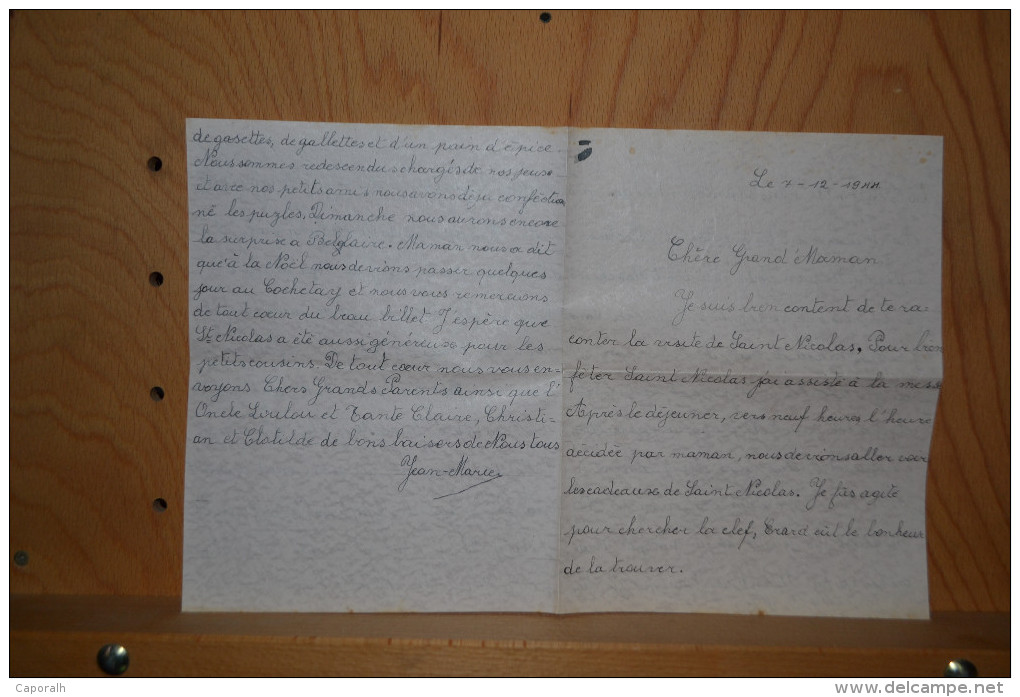 Le 7-12-1944
Chère Grand Maman
Je suis bien content de te ra-
conter la visite de Saint Nicolas. Pour bien
fêter Saint Nicolas j'ai assisté à la mess
Après le déjeuner, vers neuf heures l'heure
décidée par maman, nous devions aller voir
les cadeaux de Saint Nicolas. Je fus agité
pour chercher la clef, Erard eût le bonheur
de la trouver.
de gosettes, de gallettes et d'un pain d'épice.
Nous sommes redescendus chargés de nos jeux
et avec nos petits amis nous avons déja confection
né les puzles. Dimanche nous aurons encore
la surprise a Belglaire. Maman nous a dit
que à la Noël nous devions passer quelques
jour au Cochetay et nous vous remercions
de tout cœur du beau billet J'espère que
St Nicolas a été aussi généreux pour les
petits cousins. De tout cœur nous vous en-
voyons Chers Grands Parents ainsi que l'
Oncle Loulou et Tante Claire, Christi-
an et Clotilde de bons baisers de Nous tous
Jean-Marie
Caporalh
www.delcampe.net